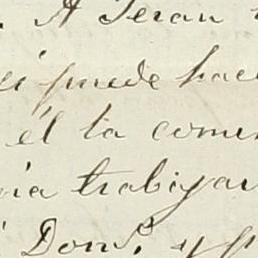 A Teran
puede hace
él la comu
ia trabajar
Dom.º y p